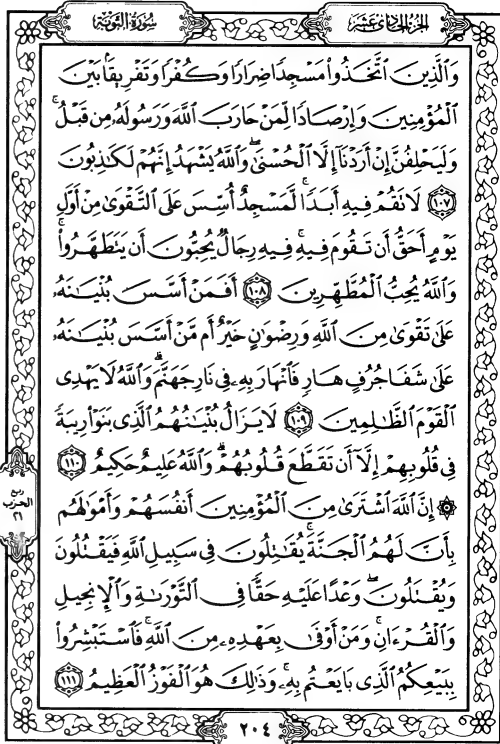 الجزء الحادي عشر
سورة التوبة
وَٱلَّذِينَ ٱتَّخَذُوا۟ مَسْجِدًا ضِرَارًا وَكُفْرًا وَتَفْرِيقًۢا بَيْنَ
ٱلْمُؤْمِنِينَ وَإِرْصَادًا لِّمَنْ حَارَبَ ٱللَّهَ وَرَسُولَهُۥ مِن قَبْلُ ۚ
وَلَيَحْلِفُنَّ إِنْ أَرَدْنَآ إِلَّا ٱلْحُسْنَىٰ ۖ وَٱللَّهُ يَشْهَدُ إِنَّهُمْ لَكَـٰذِبُونَ
١٠٧ لَا تَقُمْ فِيهِ أَبَدًا ۚ لَّمَسْجِدٌ أُسِّسَ عَلَى ٱلتَّقْوَىٰ مِنْ أَوَّلِ
يَوْمٍ أَحَقُّ أَن تَقُومَ فِيهِ ۚ فِيهِ رِجَالٌ يُحِبُّونَ أَن يَتَطَهَّرُوا۟ ۚ
وَٱللَّهُ يُحِبُّ ٱلْمُطَّهِّرِينَ ١٠٨ أَفَمَنْ أَسَّسَ بُنْيَـٰنَهُۥ
عَلَىٰ تَقْوَىٰ مِنَ ٱللَّهِ وَرِضْوَٰنٍ خَيْرٌ أَم مَّنْ أَسَّسَ بُنْيَـٰنَهُۥ
عَلَىٰ شَفَا جُرُفٍ هَارٍ فَٱنْهَارَ بِهِۦ فِى نَارِ جَهَنَّمَ ۗ وَٱللَّهُ لَا يَهْدِى
ٱلْقَوْمَ ٱلظَّـٰلِمِينَ ١٠٩ لَا يَزَالُ بُنْيَـٰنُهُمُ ٱلَّذِى بَنَوْا۟ رِيبَةً
فِى قُلُوبِهِمْ إِلَّآ أَن تَقَطَّعَ قُلُوبُهُمْ ۗ وَٱللَّهُ عَلِيمٌ حَكِيمٌ ١١٠
۞ إِنَّ ٱللَّهَ ٱشْتَرَىٰ مِنَ ٱلْمُؤْمِنِينَ أَنفُسَهُمْ وَأَمْوَٰلَهُم
بِأَنَّ لَهُمُ ٱلْجَنَّةَ ۚ يُقَـٰتِلُونَ فِى سَبِيلِ ٱللَّهِ فَيَقْتُلُونَ
وَيُقْتَلُونَ ۖ وَعْدًا عَلَيْهِ حَقًّا فِى ٱلتَّوْرَىٰةِ وَٱلْإِنجِيلِ
وَٱلْقُرْءَانِ ۚ وَمَنْ أَوْفَىٰ بِعَهْدِهِۦ مِنَ ٱللَّهِ ۚ فَٱسْتَبْشِرُوا۟
بِبَيْعِكُمُ ٱلَّذِى بَايَعْتُم بِهِۦ ۚ وَذَٰلِكَ هُوَ ٱلْفَوْزُ ٱلْعَظِيمُ ١١١
ربع
الحزب
٢١
٢٠٤